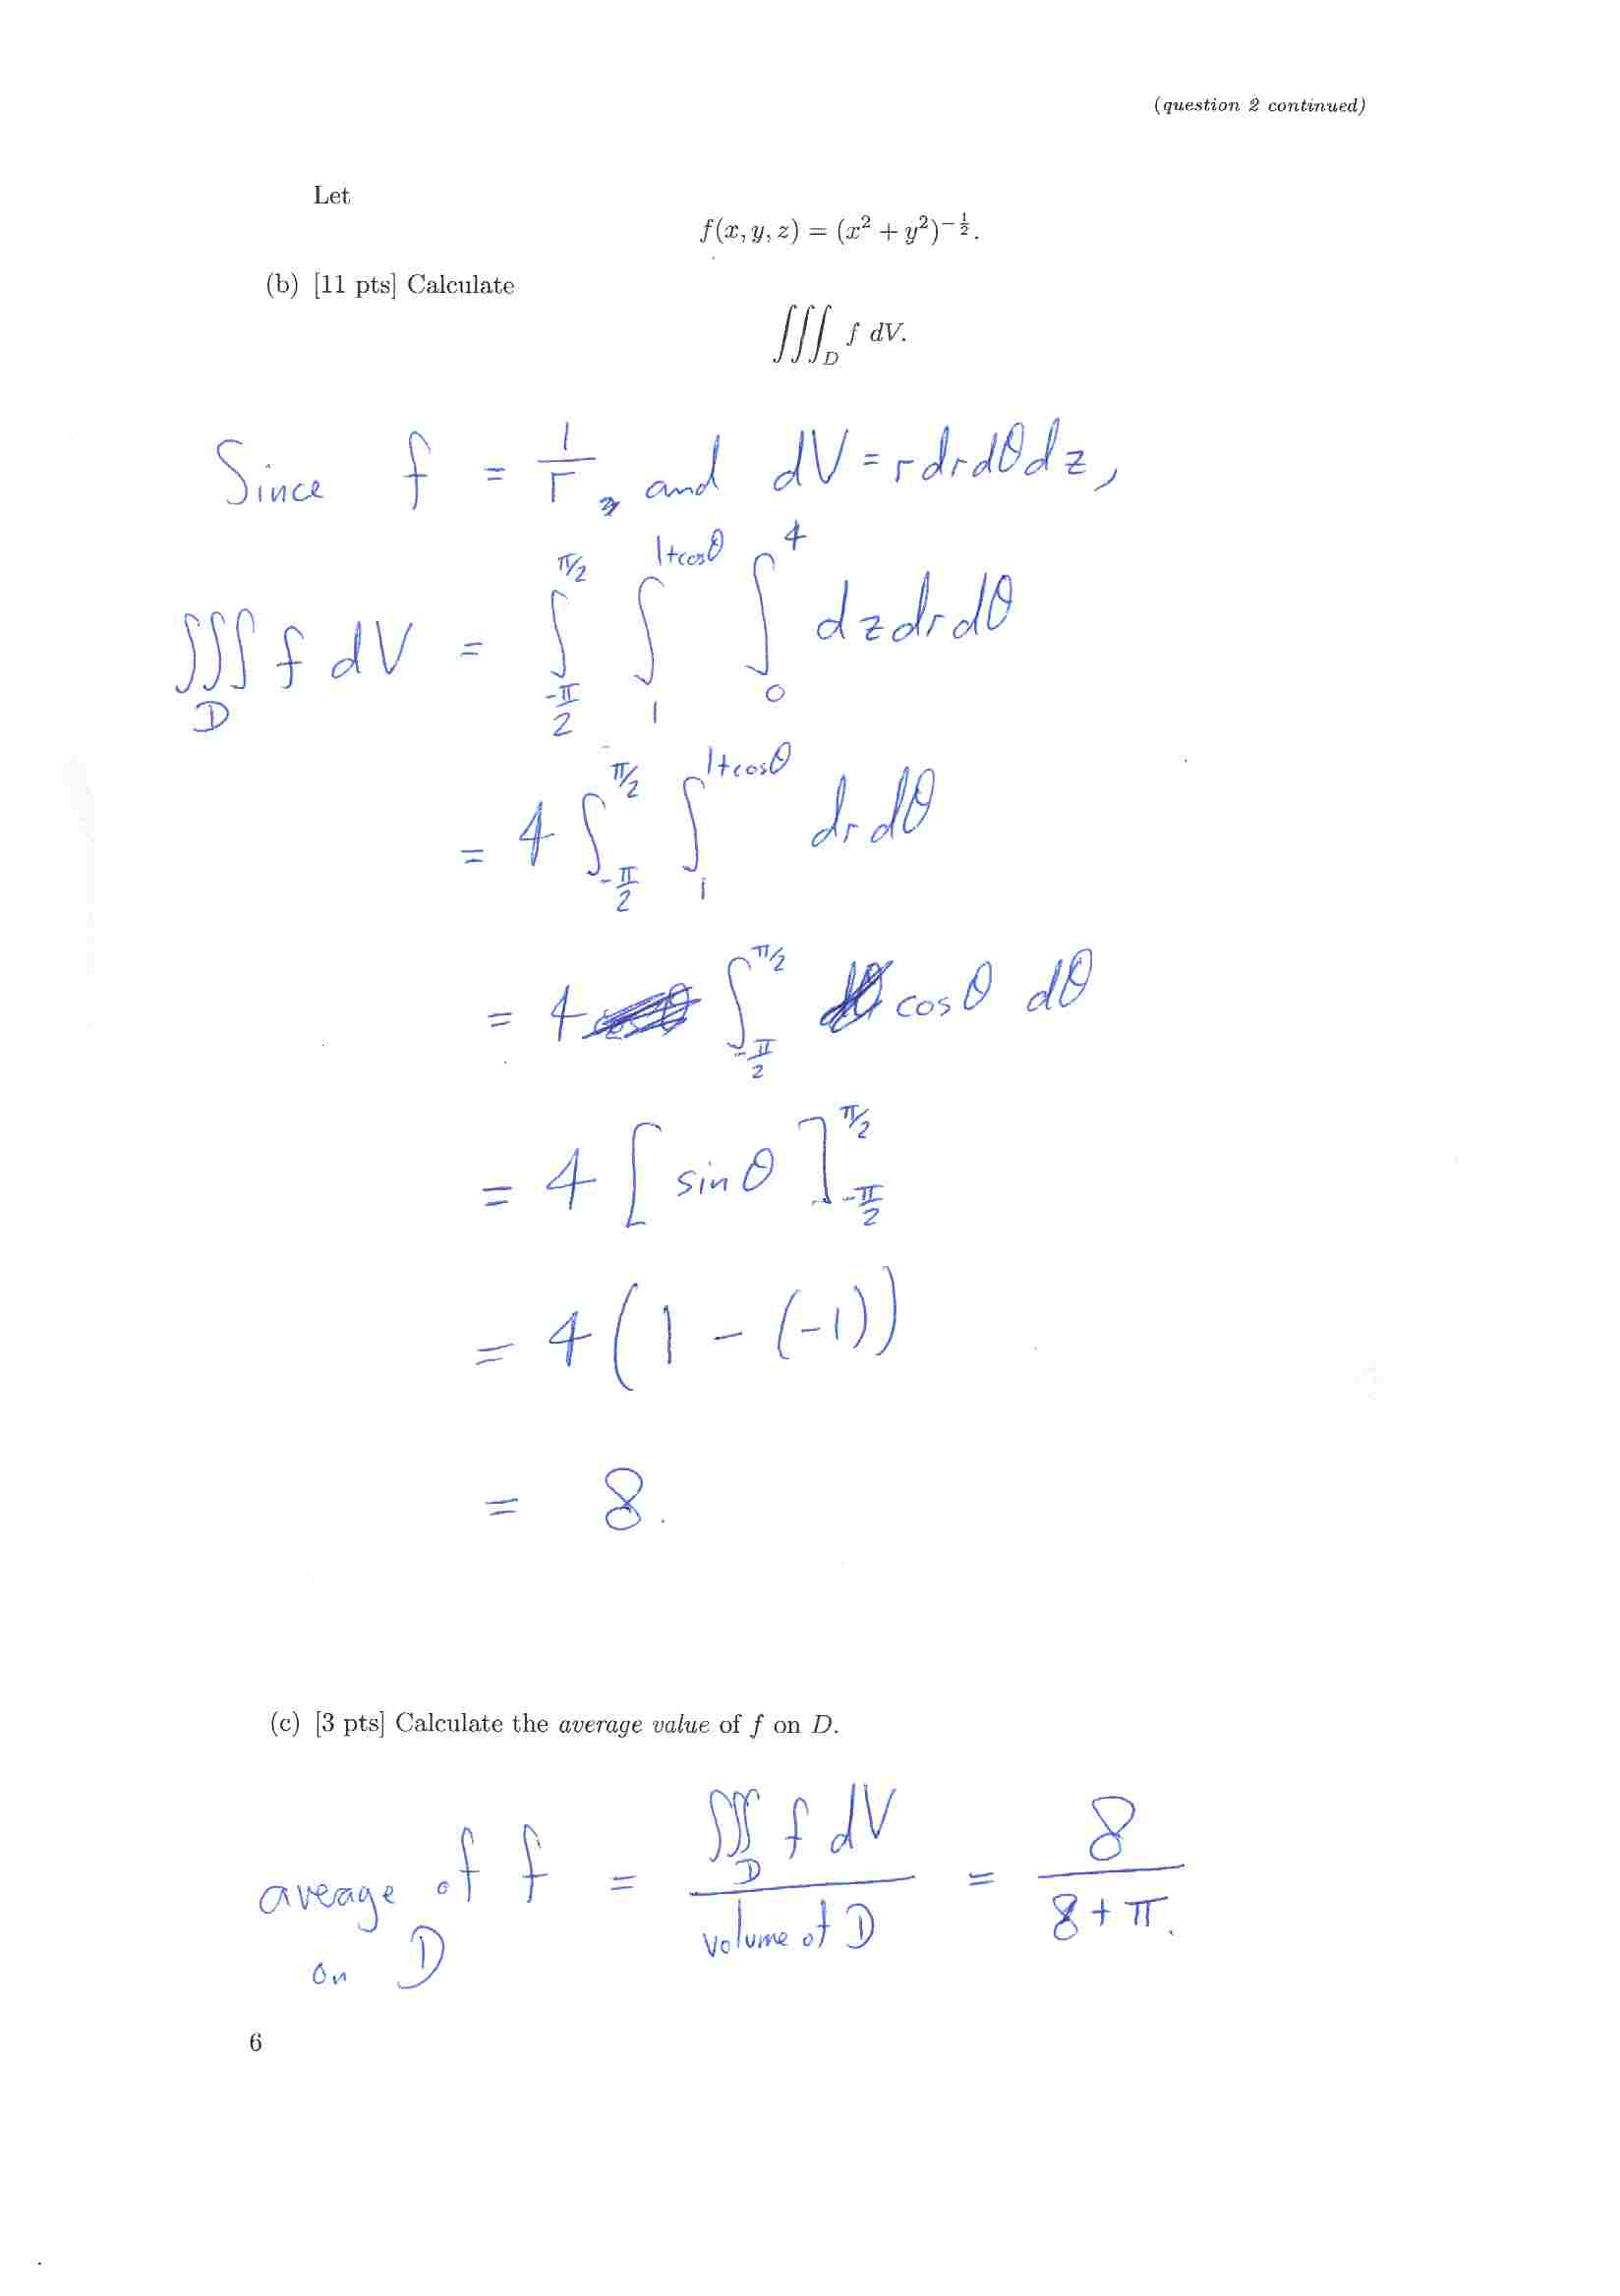 (question 2 continued)
Let
f(x, y, z) = (x² + y²)^{-1/2}.
(b) [11 pts] Calculate
∭_D f dV.
Since f = 1/r, and dV = r dr dθ dz,
∭_D f dV = ∫_{-π/2}^{π/2} ∫_1^{1+cosθ} ∫_0^4 dz dr dθ
= 4 ∫_{-π/2}^{π/2} ∫_1^{1+cosθ} dr dθ
= 4 ∫_{-π/2}^{π/2} cos θ dθ
= 4 [ sin θ ]_{-π/2}^{π/2}
= 4 ( 1 - (-1))
= 8.
(c) [3 pts] Calculate the average value of f on D.
average of f on D = ∭_D f dV / volume of D = 8 / 8+π.
6